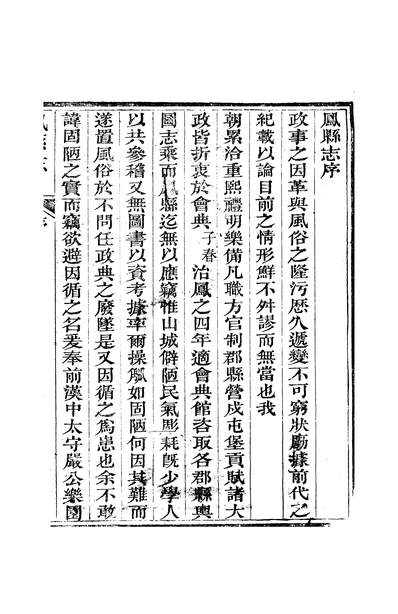 鳳縣志序
政事之因革與風俗之隆污歷久遞變不可窮狀勵據前代之
紀載以論目前之情形鮮不舛謬而無當也我
朝累洽重熙禮明樂備凡職方官制郡縣營戍屯堡貢賦諸大
政皆折衷於會典子春治鳳之四年適會典館咨取各郡縣輿
圖志乘而鳳縣迄無以應竊惟山城僻陋民氣彫耗旣少學人
以共參稽又無圖書以資考據率爾操觚如固陋何因其難而
遂置風俗於不問任政典之廢墜是又因循之為患也余不敢
諱固陋之實而竊欲避因循之名爰奉前漢中太守嚴公樂園